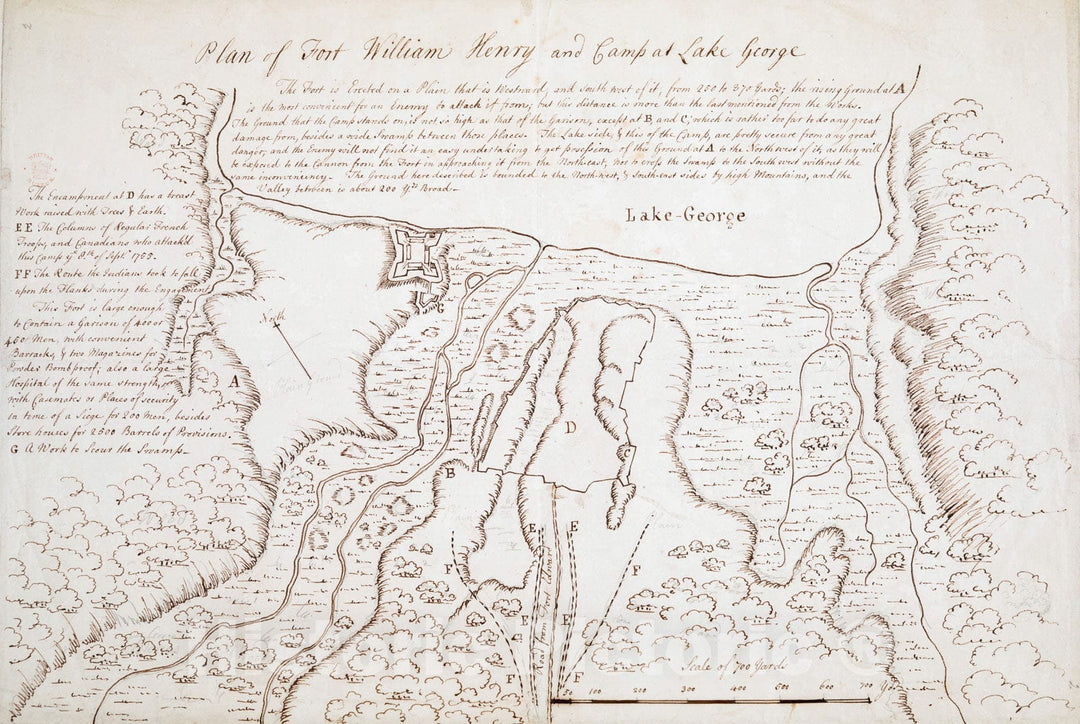 Plan of Fort William Henry and Camp at Lake George
The Fort is Erected on a Plain that is Westward, and South west of it, from 250 to 870 Yards; the rising Ground at A
is the most convenient for an Enemy to attack it from; but this distance is more than the last mentioned from the Works.
The Ground that the Camp stands on, is not so high as that of the Garison, except at B, and C, which is rather too far to do any great
damage from, besides a wide Swamp between those places. The Lake side, & this of the Camp, are pretty secure from any great
danger, and the Enemy will not find it an easy undertaking to get possession of this Ground at A to the North west of it, as they will
be exposed to the Cannon from the Fort in approaching it from the Northeast, nor to cross the Swamp to the South west without the
same inconveniency. The Ground here described is bounded to the North-west, & South-east sides by high Mountains, and the
Valley between is about 200 Yds Broad.
The Encampment at D has a breast
Work raised with Trees & Earth.
EE The Columns of Regular French
Troops, and Canadians who attack'd
this Camp ye 8th of Septr 1755.
FF The Route the Indians took to fall
upon the Flanks during the Engagement
This Fort is large enough
to Contain a Garison of 400 or
450 Men, with convenient
Barracks, & two Magazines for
Powder Bombproof; also a large
Hospital of the same strength,
with Casemates or Places of security
in time of a Siege for 200 Men, besides
Store houses for 2500 Barrels of Provisions.
G A Work to Scout the Swamp
Lake-George
North
G
A
D
B
C
E
E
F
F
E
E
F
F
Road from Fort Edward
Scale of 700 Yards
50 100 200 300 400 500 600 700 Yds